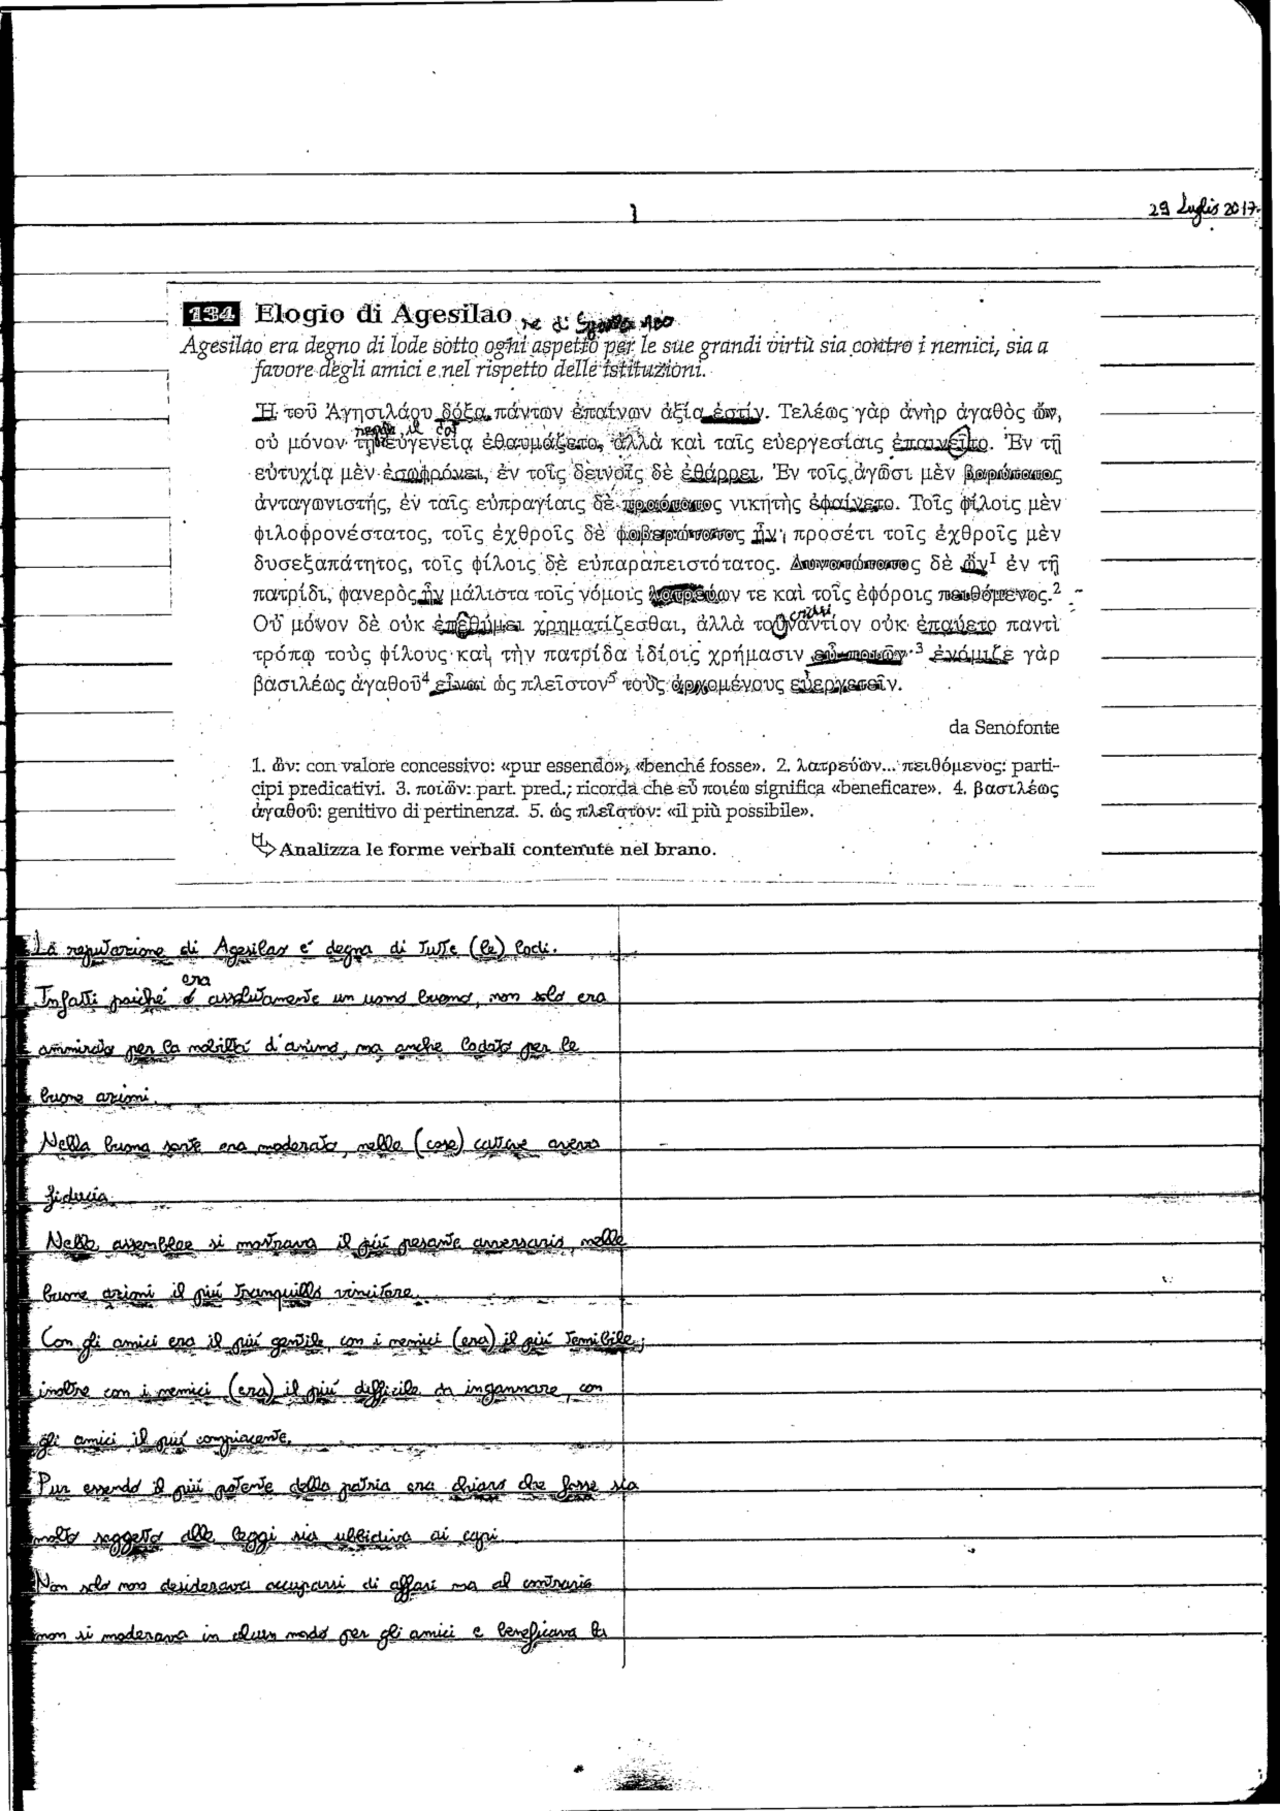 1
29 Luglio 2017
134 Elogio di Agesilao re di
Agesilao era degno di lode sotto ogni aspetto per le sue grandi virtù sia contro i nemici, sia a
favore degli amici e nel rispetto delle istituzioni.
Ἡ τοῦ Ἀγησιλάου δόξα πάντων ἐπαίνων ἀξία ἐστίν. Τελέως γὰρ ἀνὴρ ἀγαθὸς ὤν,
regge il dat
οὐ μόνον τῇ εὐγενείᾳ ἐθαυμάζετο, ἀλλὰ καὶ ταῖς εὐεργεσίαις ἐπαινεῖτο. Ἐν τῇ
εὐτυχίᾳ μὲν ἐσωφρόνει, ἐν τοῖς δεινοῖς δὲ ἐθάρρει. Ἐν τοῖς ἀγῶσι μὲν βαρύτατος
ἀνταγωνιστής, ἐν ταῖς εὐπραγίαις δὲ πραότατος νικητὴς ἐφαίνετο. Τοῖς φίλοις μὲν
φιλοφρονέστατος, τοῖς ἐχθροῖς δὲ φοβερώτατος ἦν· προσέτι τοῖς ἐχθροῖς μὲν
δυσεξαπάτητος, τοῖς φίλοις δὲ εὐπαραπειστότατος. Δυνατώτατος δὲ ὢν1 ἐν τῇ
πατρίδι, φανερὸς ἦν μάλιστα τοῖς νόμοις λατρεύων τε καὶ τοῖς ἐφόροις πειθόμενος.2
Οὐ μόνον δὲ οὐκ ἐπεθύμει χρηματίζεσθαι, ἀλλὰ τοὐναντίον οὐκ ἐπαύετο παντὶ
crasi
τρόπῳ τοὺς φίλους καὶ τὴν πατρίδα ἰδίοις χρήμασιν εὖ ποιῶν·3 ἐνόμιζε γὰρ
βασιλέως ἀγαθοῦ4 εἶναι ὡς πλεῖστον5 τοὺς ἀρχομένους εὐεργετεῖν.
da Senofonte
1. ὤν: con valore concessivo: «pur essendo», «benché fosse». 2. λατρεύων... πειθόμενος: parti-
cipi predicativi. 3. ποιῶν: part. pred.; ricorda che εὖ ποιέω significa «beneficare». 4. βασιλέως
ἀγαθοῦ: genitivo di pertinenza. 5. ὡς πλεῖστον: «il più possibile».
Analizza le forme verbali contenute nel brano.
La reputazione di Agesilao é degna di tutte (le) lodi.
era
Infatti poiché é assolutamente un uomo buono, non solo era
ammirato per la nobiltá d'animo, ma anche lodato per le
buone azioni.
Nella buona sorte era moderato, nelle (cose) cattive aveva
fiducia.
Nelle assemblee si mostrava il piú pesante avversario, nelle
buone azioni il piú tranquillo vincitore.
Con gli amici era il piú gentile, con i nemici (era) il piú temibile;
inoltre con i nemici (era) il piú difficile da ingannare, con
gli amici il piú compiacente.
Pur essendo il piú potente della patria era chiaro che fosse sia
molto soggetto alle leggi sia ubbidiva ai capi.
Non solo non desiderava occuparsi di affari ma al contrario
non si moderava in alcun modo per gli amici e beneficava la